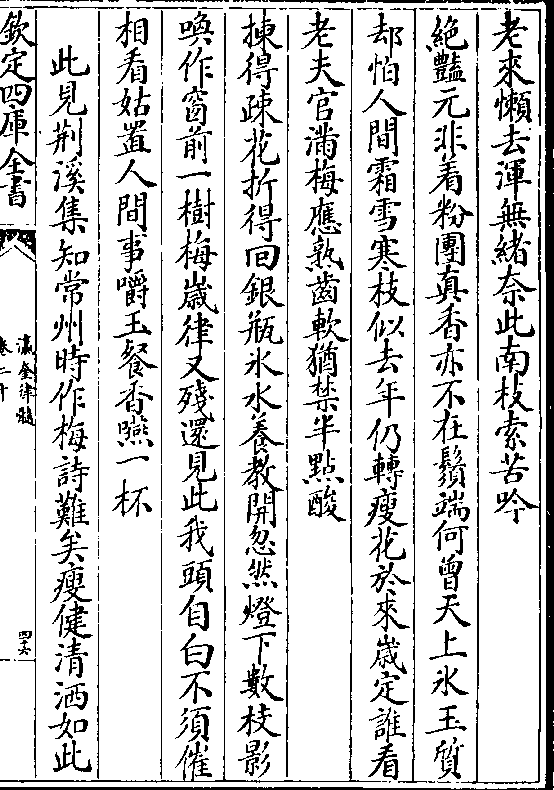 老來懶去渾無緒奈此南枝索苦吟
絶豔元非着粉團真香亦不在鬚端何曾天上氷玉質
却怕人間霜雪寒枝似去年仍轉瘦花於來嵗定誰看
老夫官滿梅應熟齒軟猶禁半點酸
揀得疎花折得回銀瓶氷水養教開忽然燈下數枝影
喚作窗前一樹梅嵗律又殘還見此我頭自白不須催
相看姑置人間事嚼玉餐香嚥一杯
此見荆溪集知常州時作梅詩難矣瘦健清洒如此
欽定四庫全書
瀛奎律髓
卷二十
四十六